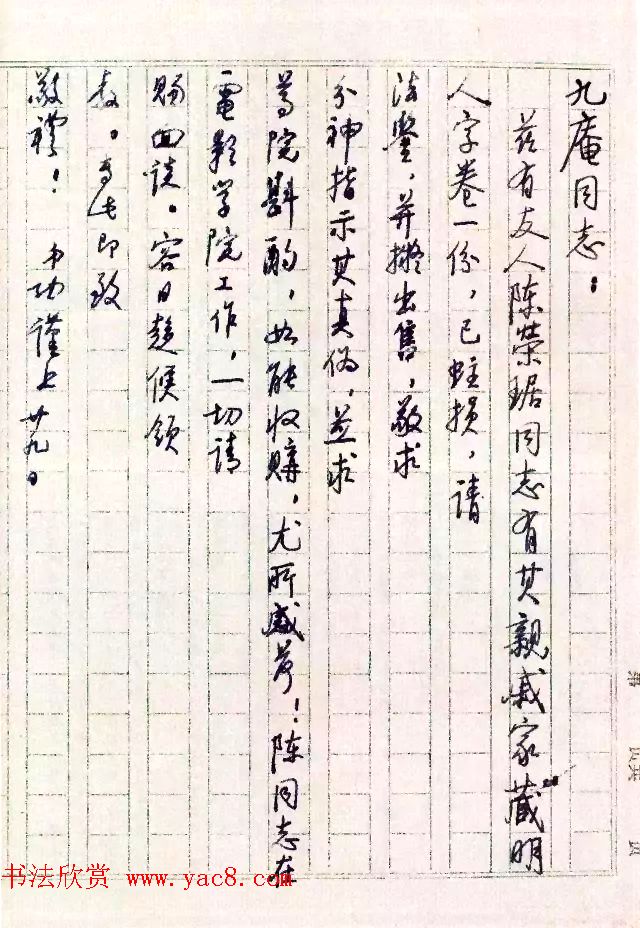 九庵同志：
兹有友人陈荣琚同志有其親戚家藏明
人字卷一份，已蛀损，请
法鉴，并擬出售，敬求
分神指示其真偽，並求
尊院斟酌，如能收購，尤所感荷！陈同志在
電影学院工作，一切请
赐面谈。容日趋候领
教。专此即致
敬礼！ 功謹上 廿九日
书法欣赏 www.yac8.com